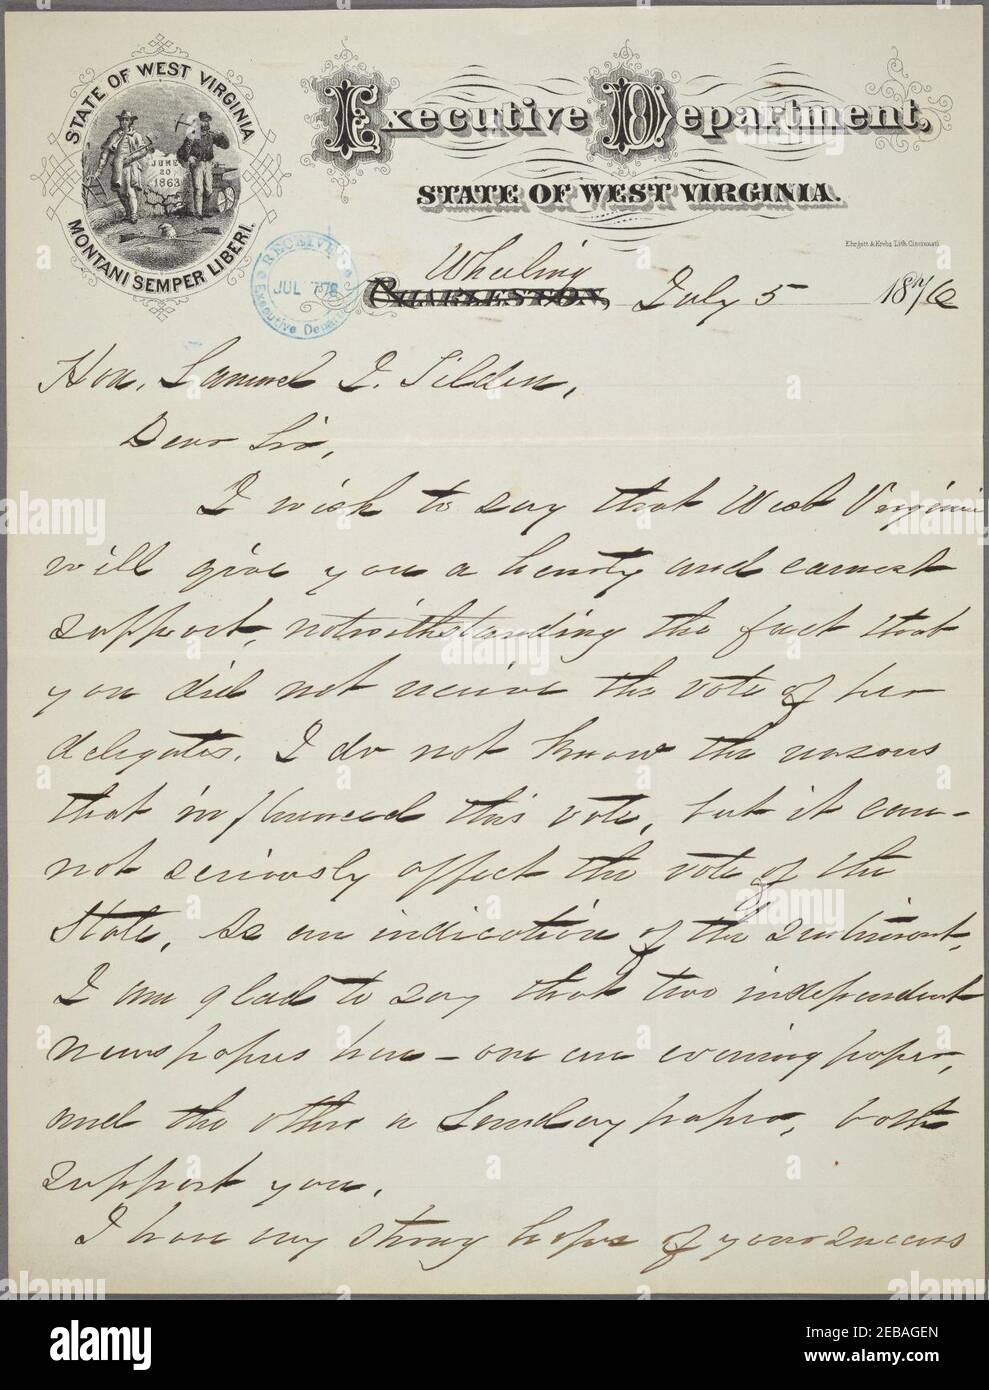 STATE OF WEST VIRGINIA
JUNE
20
1863
MONTANI SEMPER LIBERI.
Executive Department,
STATE OF WEST VIRGINIA.
Ehrgott & Krebs Lith. Cincinnati
RECEIVED
JUL 7 76
Executive Depart
Wheeling
CHARLESTON, July 5 1876
Hon. Samuel J. Tilden,
Dear Sir,
I wish to say that West Virginia
will give you a hearty and earnest
support, notwithstanding the fact that
you did not receive the vote of her
delegates. I do not know the reasons
that influenced this vote, but it can-
not seriously affect the vote of the
State, as an indication of the sentiment.
I am glad to say that two independent
newspapers here - one an evening paper,
and the other a Sunday paper, both
support you.
I have very strong hopes of your success
alamy
Image ID: 2EBAGEN
www.alamy.com